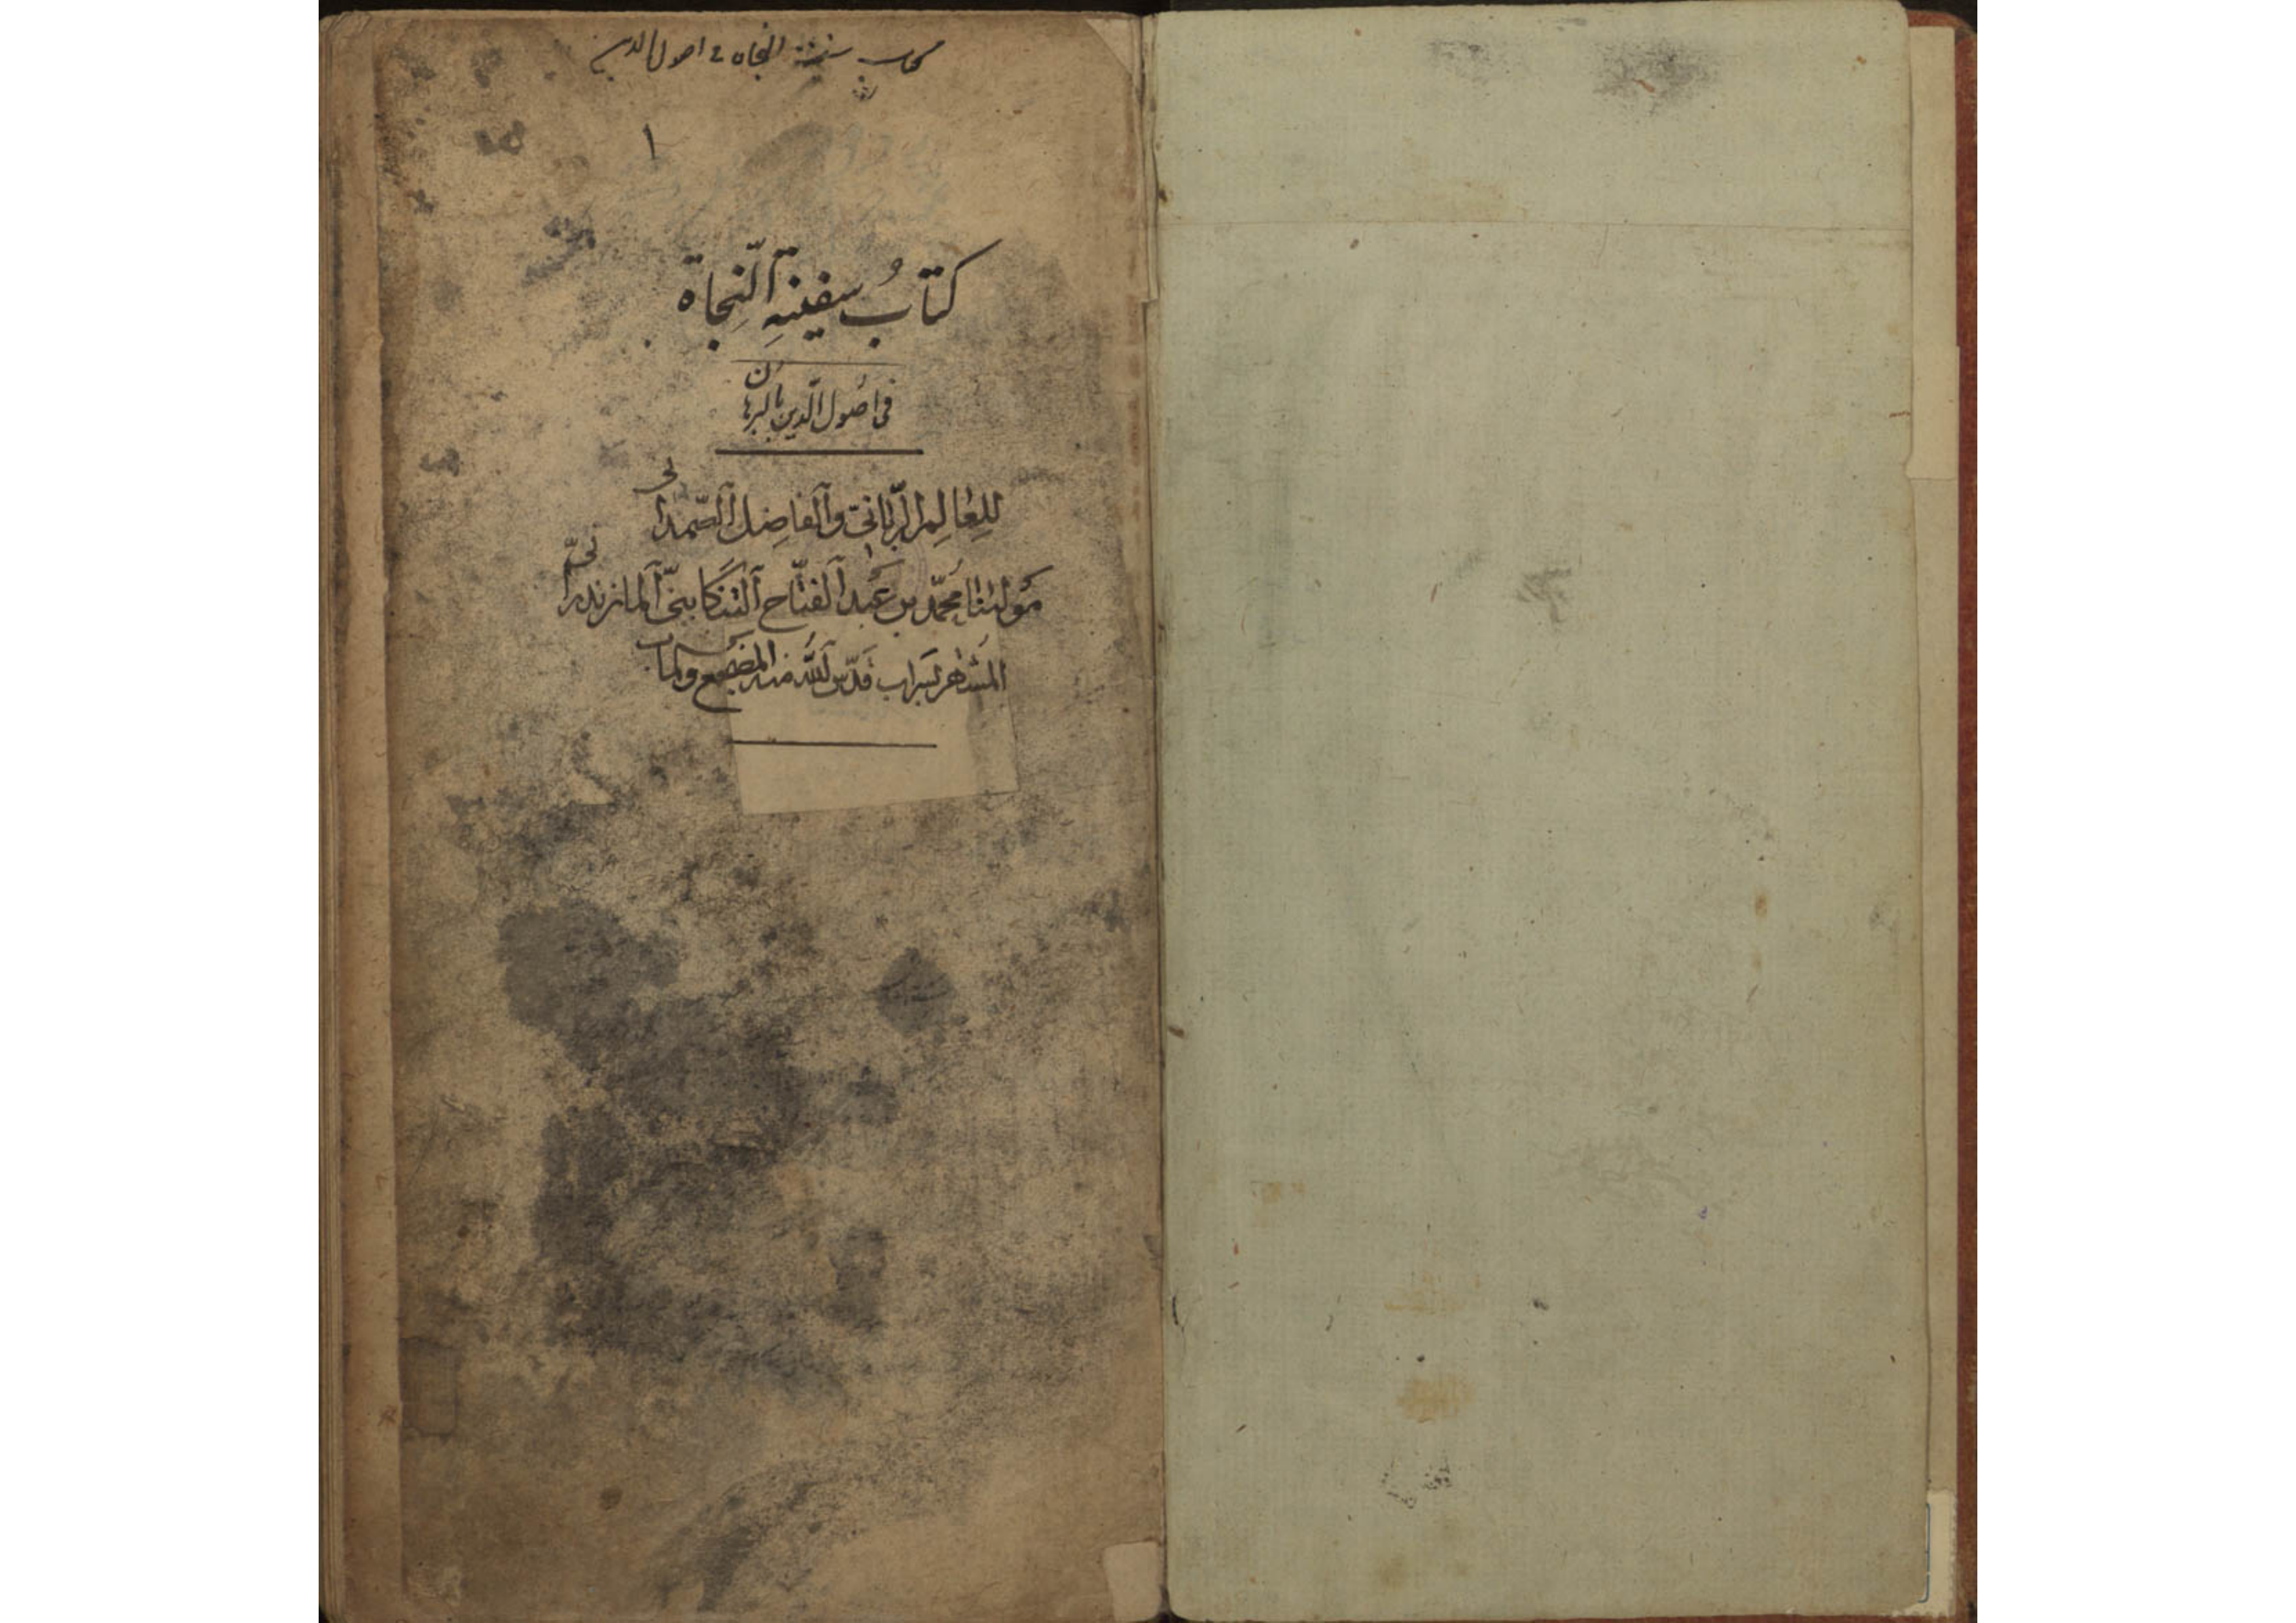 كتاب سفينة النجاه في اصول الدين
١
كتابُ سفينةِ النّجاة
في اصُول الدّين بالبرهان
للعٰالِم الرّبّانيّ والفاضِل الصّمدانى
مَولٰنٰا محمّد بن عَبد الفتّاح التنكابنيّ المازندرانيّ
المشتهر بسراب قدّس اللّه منه المضجع والمآب